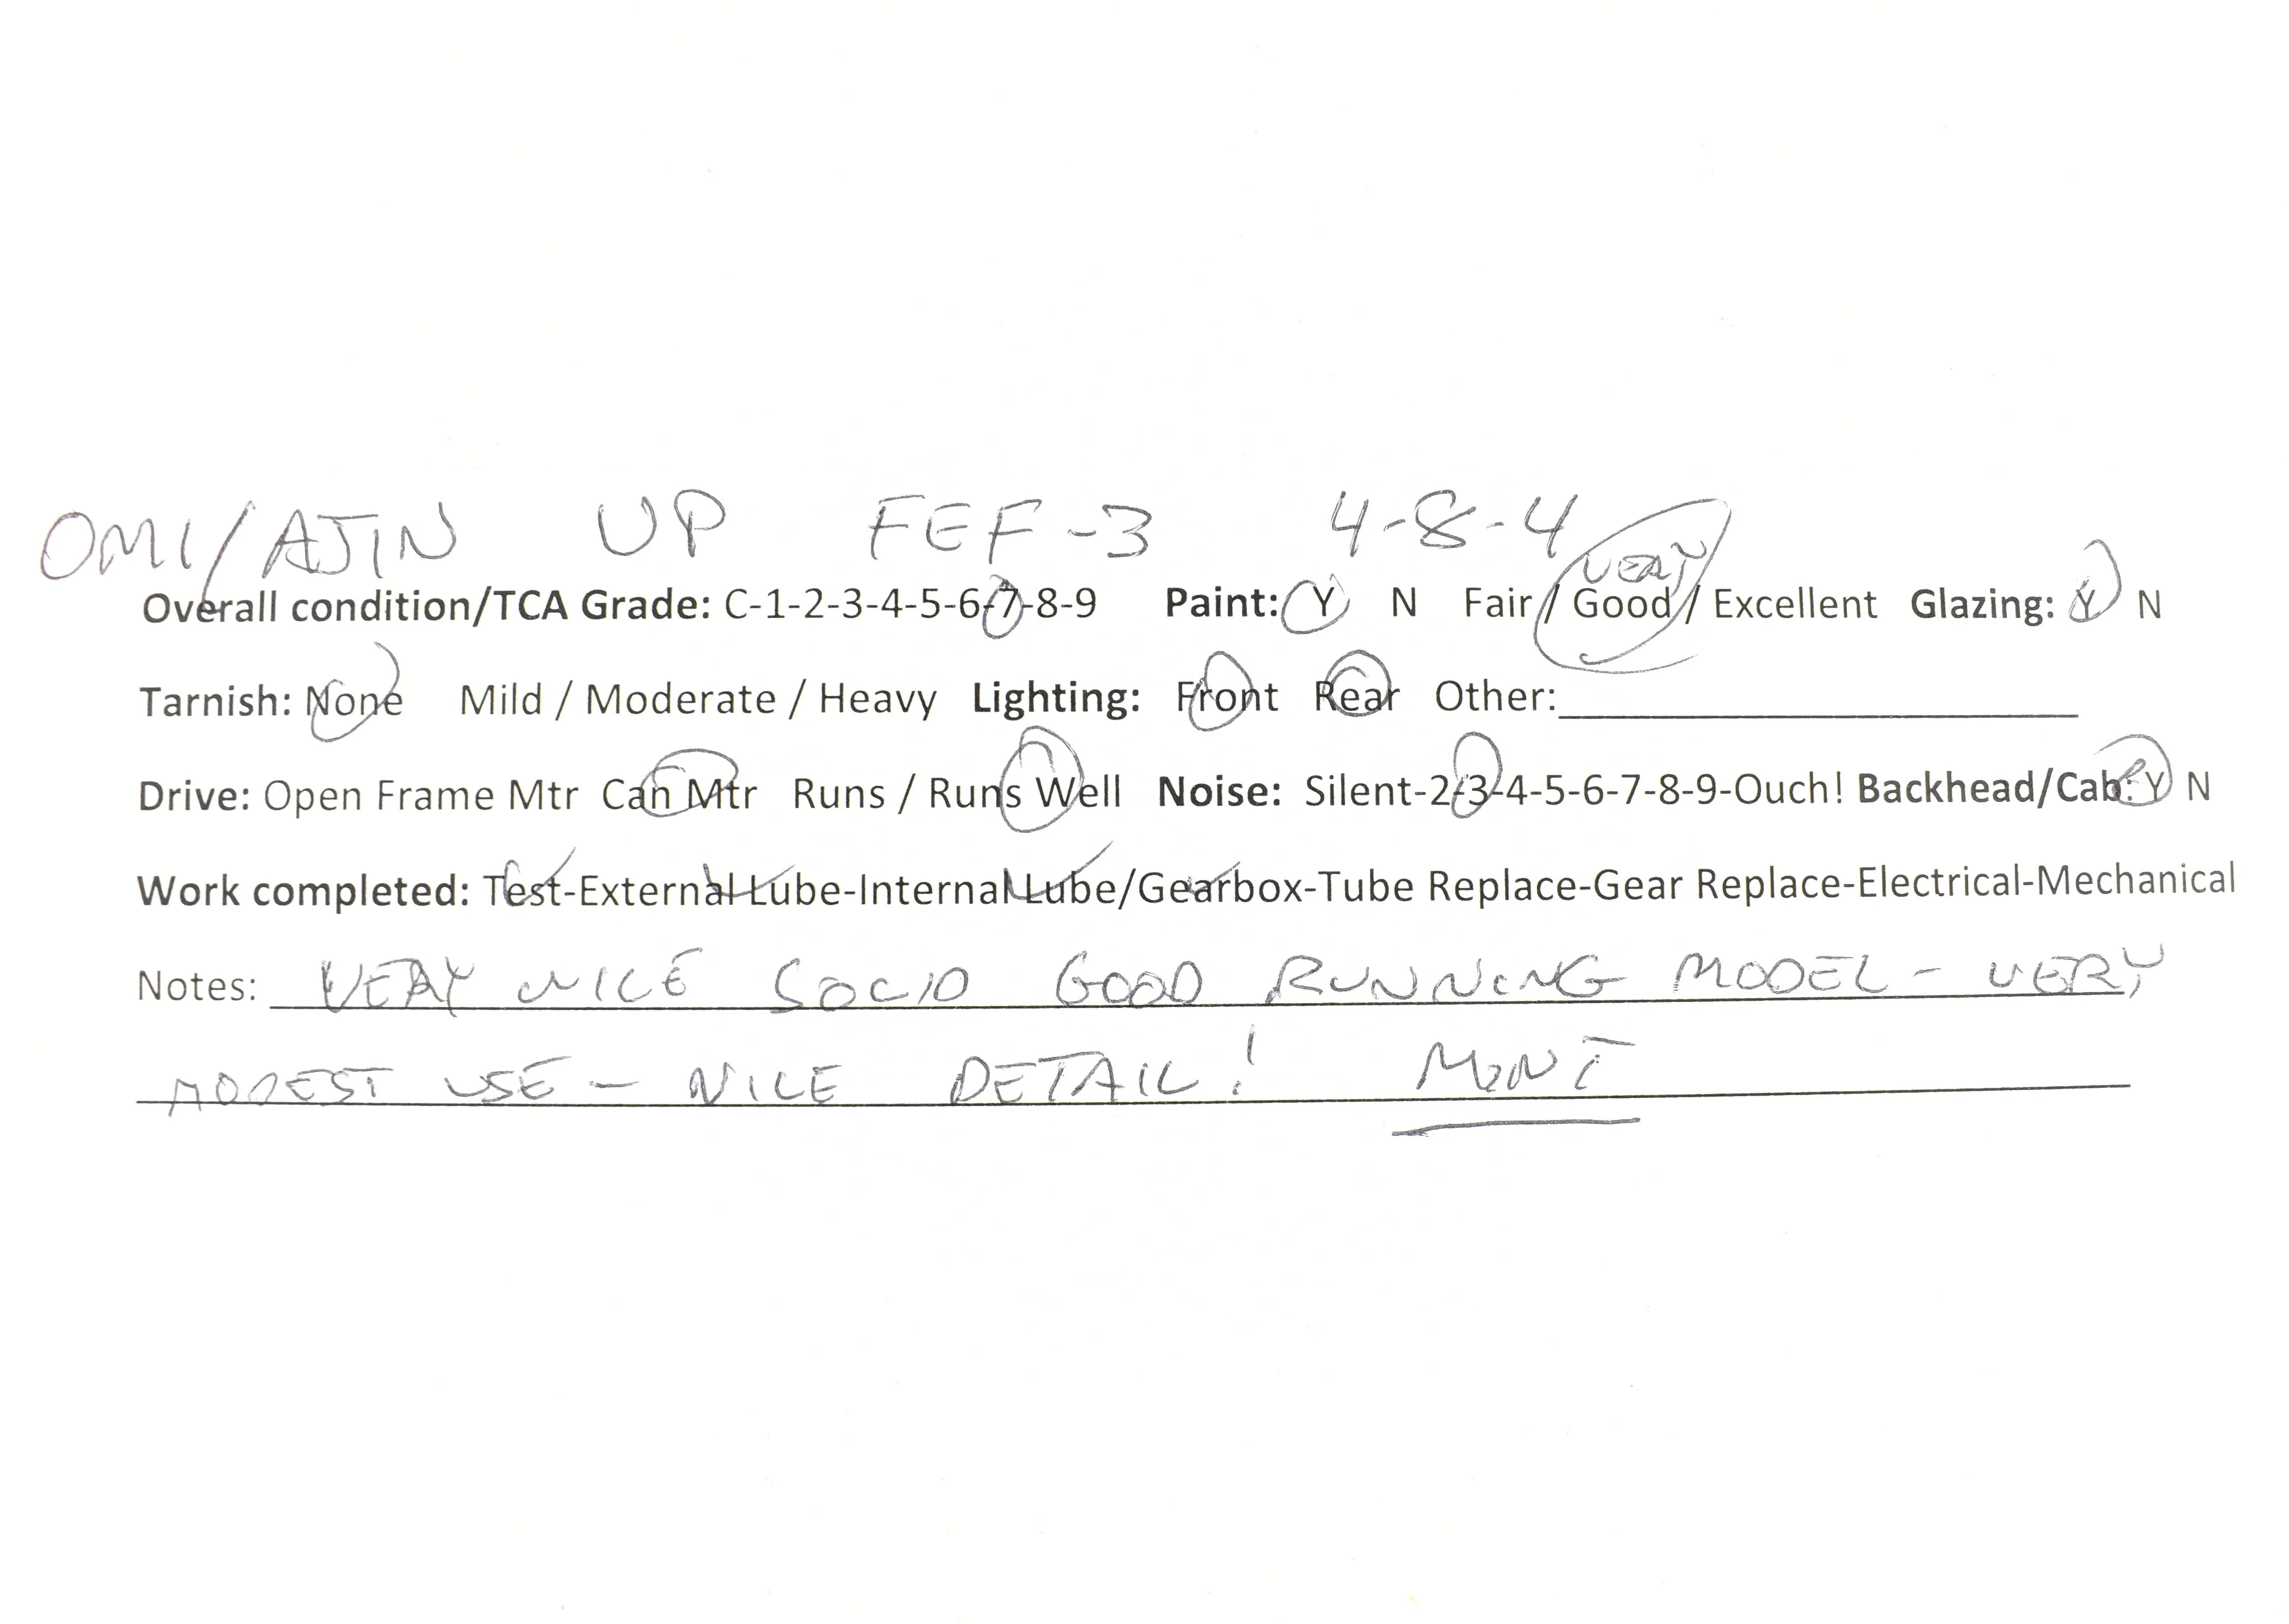 OMI/AJIN UP FEF-3 4-8-4
VERY
Overall condition/TCA Grade: C-1-2-3-4-5-6-7-8-9 Paint: Y N Fair / Good / Excellent Glazing: Y N
Tarnish: None Mild / Moderate / Heavy Lighting: Front Rear Other:
Drive: Open Frame Mtr Can Mtr Runs / Runs Well Noise: Silent-2-3-4-5-6-7-8-9-Ouch! Backhead/Cab: Y N
Work completed: Test-External Lube-Internal Lube/Gearbox-Tube Replace-Gear Replace-Electrical-Mechanical
Notes: VERY NICE SOLID GOOD RUNNING MODEL - VERY
MODEST USE - NICE DETAIL! MINT